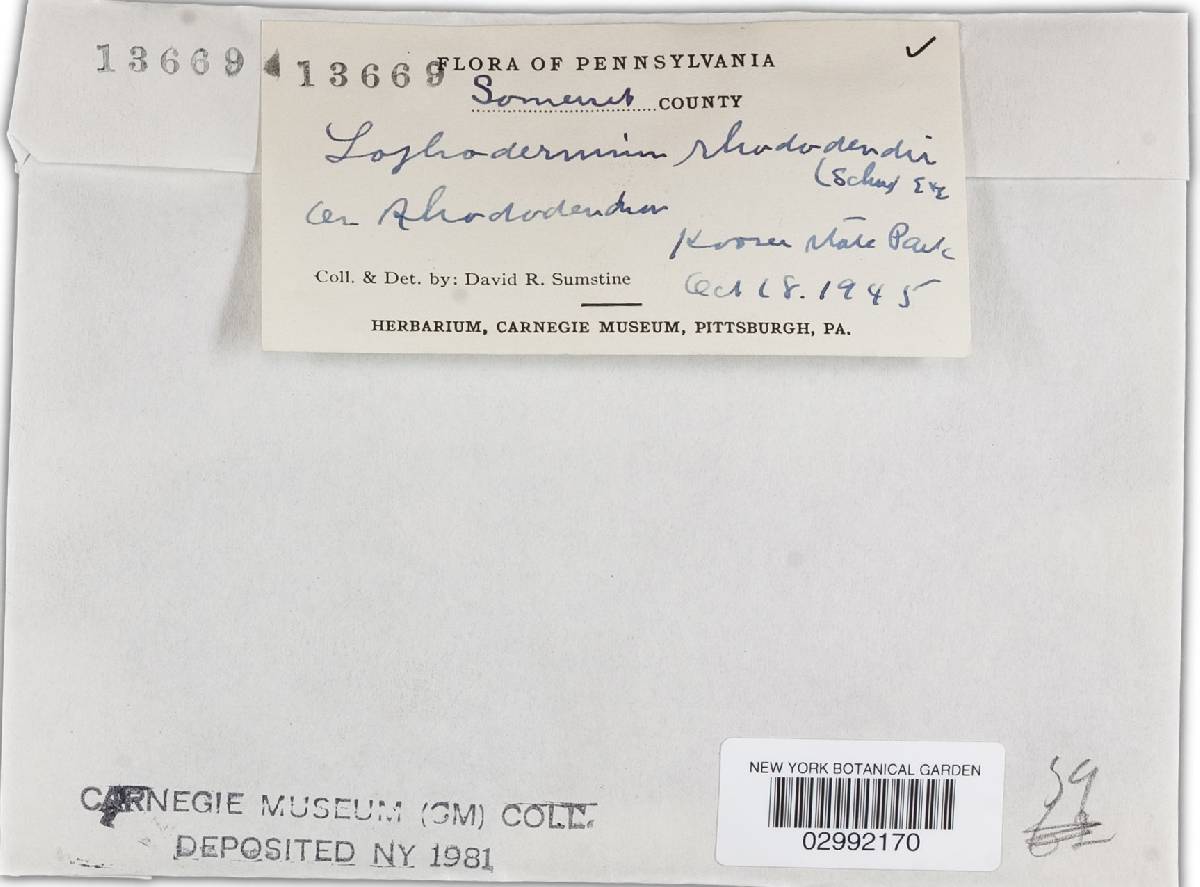 13669 13669 FLORA OF PENNSYLVANIA
Somerset COUNTY
Lophodermium rhododendri
(Schw) E & E
On Rhododendron
Kooser State Park
Coll. & Det. by: David R. Sumstine
Oct 18. 1945
HERBARIUM, CARNEGIE MUSEUM, PITTSBURGH, PA.
CARNEGIE MUSEUM (CM) COLL.
DEPOSITED NY 1981
NEW YORK BOTANICAL GARDEN
02992170
59